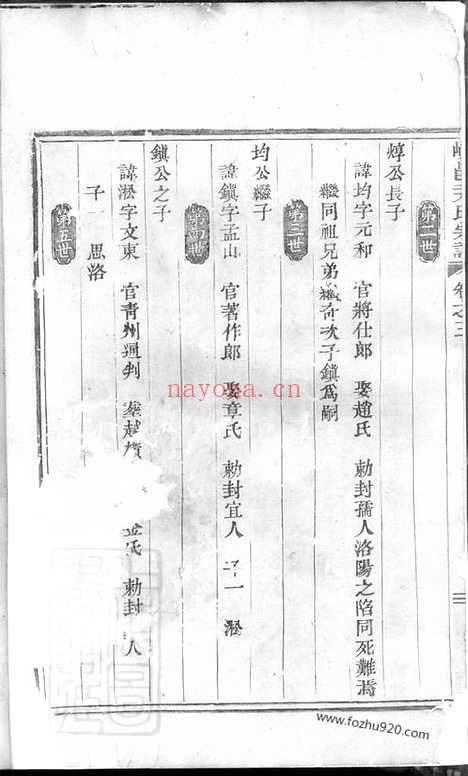 尹氏宗譜 卷之三
第二世
焞公長子
諱均字元和 官將仕郎 娶趙氏 勅封孺人洛陽之陷同死難焉
繼同祖兄弟 次子鎮爲嗣
第三世
均公繼子
諱鎮字孟山 官著作郎 娶章氏 勅封宜人 子一 淞
第四世
鎮公之子
諱淞字文東 官青州通判 氏 勅封 人
子 思洛
第五世
nayona.cn
www.fozhu920.com